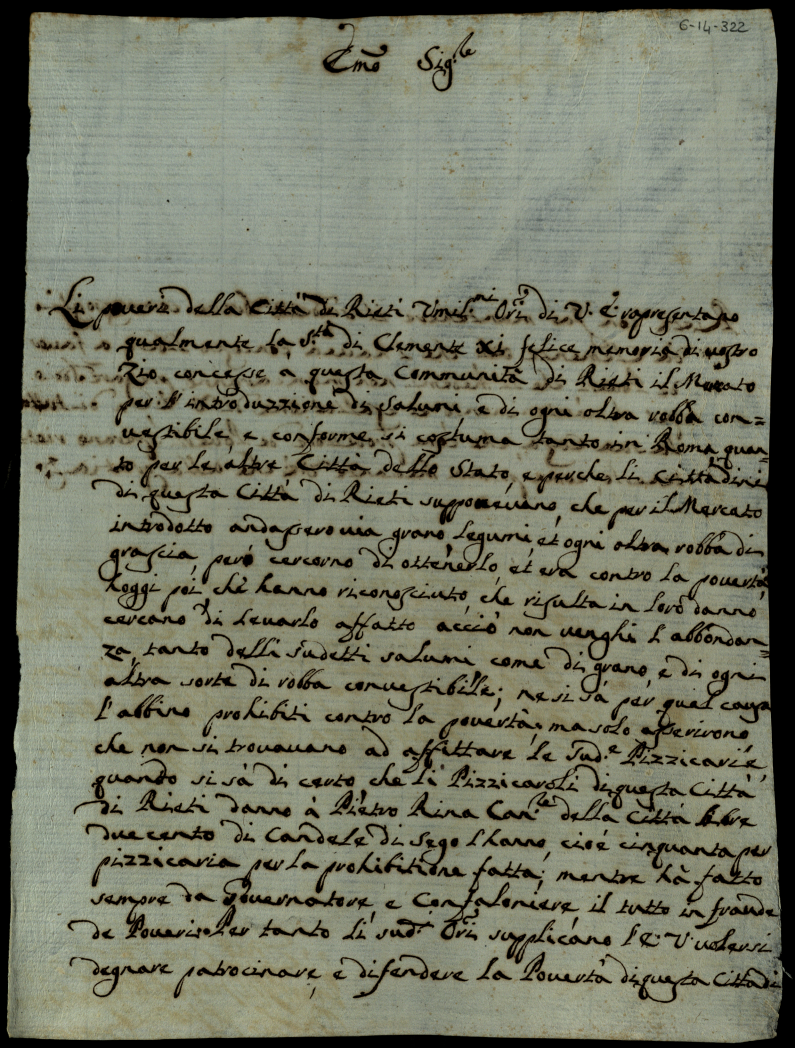 6-14-322
Em̃o Sig.re
Li poveri della Città di Rieti Umil.mi Ori di V. E. rapresentano
qualmente la S.tà di Clemente XI felice memoria di vostro
Zio concesse a questa Communità di Rieti il Mercato
per l'introduzzione di salumi e di ogni altra robba com=
vestibile, e conforme si costuma tanto in Roma quan=
to per le altre Città dello Stato, e perche li Cittadini
di questa Città di Rieti supponevano, che per il Mercato
introdotto andassero via grano legumi et ogni altra robba di
grascia, però cercorno di ottenerlo, et era contro la povertà
hoggi poi, che hanno riconosciuto, che risulta in loro danno
cercano di levarlo affatto acciò non venghi l'abbondan=
za, tanto delli sudetti salumi come di grano, e di ogni
altra sorte di robba comvestibile; ne si sà per qual causa
l'abbino prohibiti contro la povertà; ma solo asserirono
che non si trovavano ad affittare le Sud.e Pizzicarie,
quando si sà di certo che li Pizzicaroli di questa Città
di Rieti danno à Pietro Rina Can.re della Città libre
duecento di Candele di sego l'hanno, cioè cinquanta per
pizzicaria per la prohibitione fatta; mentre hà fatto
sempre da Governatore e Confaloniere, il tutto in fraude
de Poveri. Per tanto li sud.i Ori supplicano l'E. V. volersi
degnare patrocinare, e difendere la Povertà di questa Città di